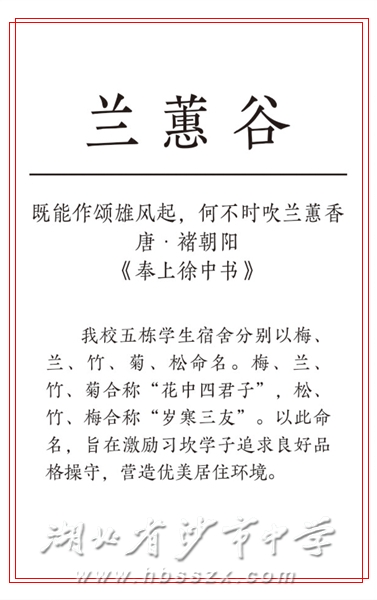 兰蕙谷
既能作颂雄风起，何不时吹兰蕙香
唐·褚朝阳
《奉上徐中书》
我校五栋学生宿舍分别以梅、
兰、竹、菊、松命名。梅、兰、
竹、菊合称“花中四君子”，松、
竹、梅合称“岁寒三友”。以此命
名，旨在激励习坎学子追求良好品
格操守，营造优美居住环境。
湖北省沙市中学
www.hbsszx.com